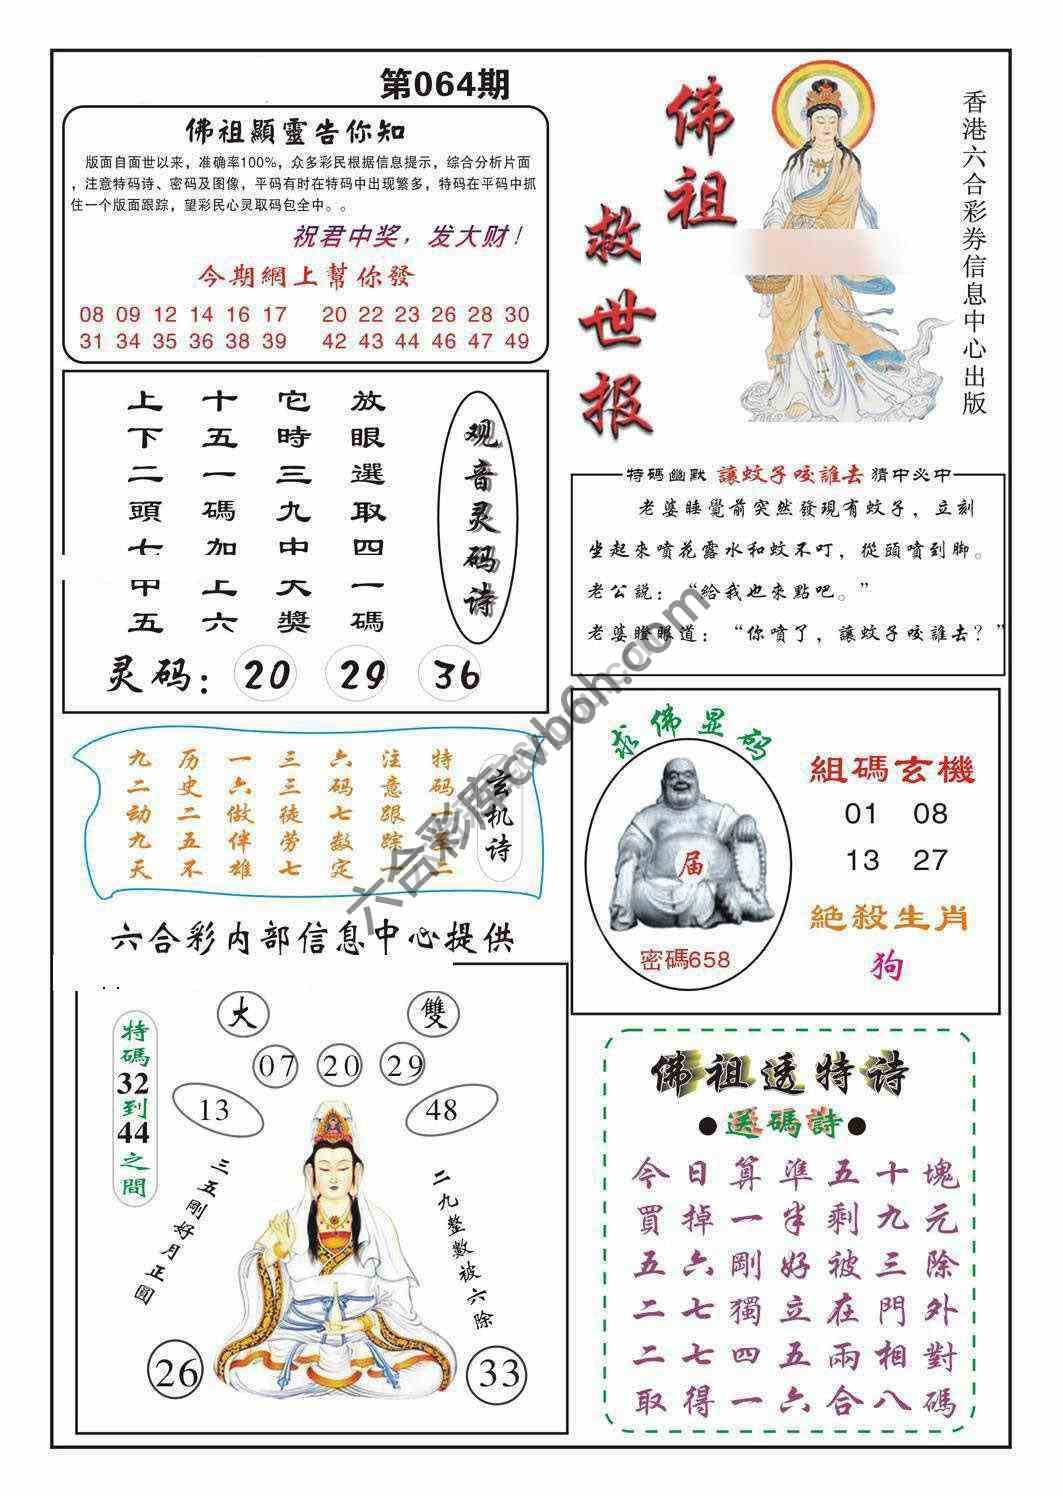 第064期
佛祖顯靈告你知
版面自面世以来，准确率100%，众多彩民根据信息提示，综合分析片面
，注意特码诗、密码及图像，平码有时在特码中出现繁多，特码在平码中抓
住一个版面跟踪，望彩民心灵取码包全中。。
祝君中奖，发大财！
今期網上幫你發
08 09 12 14 16 17 20 22 23 26 28 30
31 34 35 36 38 39 42 43 44 46 47 49
佛祖
救世报
香港六合彩券信息中心出版
观音灵码诗
放眼選取四一碼
它時三九中大獎
十五一碼加上六
上下二頭七甲五
灵码：20 29 36
特碼幽默 讓蚊子咬誰去 猜中必中
老婆睡覺前突然發現有蚊子，立刻
坐起來噴花露水和蚊不叮，從頭噴到脚。
老公説：“给我也來點吧。”
老婆瞪眼道：“你噴了，讓蚊子咬誰去？”
玄机诗
特码
注意跟踪
六码七数定
三三徒劳七
一六做伴雄
历史二五不
九二动九天
求佛显码
届
密碼658
組碼玄機
01 08
13 27
絶殺生肖
狗
六合彩内部信息中心提供
大 雙
07 20 29
13 48
特碼32到44之間
三五剛好月正圓
二九整數被六除
26 33
佛祖透特诗
●送碼詩●
今日算準五十塊
買掉一半剩九元
五六剛好被三除
二七獨立在門外
二七四五兩相對
取得一六合八碼
六合彩库cvb6h.com